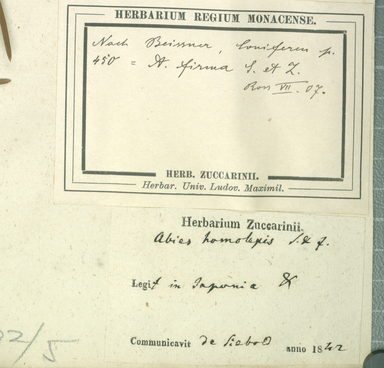 HERBARIUM REGIUM MONACENSE.
Nach Beissner, Coniferen p.
450 = A. firma S. et Z.
Ross VII. 07.
HERB. ZUCCARINII.
Herbar. Univ. Ludov. Maximil.
Herbarium Zuccarinii.
Abies homolepis S. & Z.
Legit in Japonia
Communicavit de Siebold anno 1842
02/5